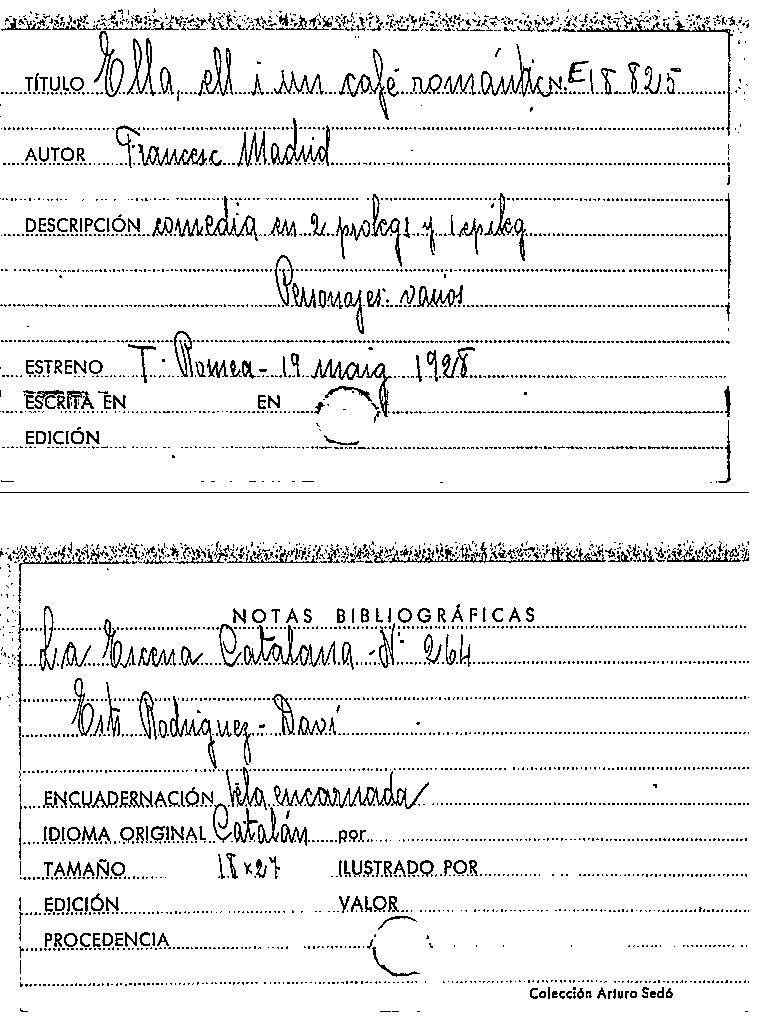 TÍTULO Ella, ell i un café romántic N.E18 825
AUTOR Francesc Madrid
DESCRIPCIÓN comedia en 2 prolegs y 1 epileg
Personajes: varios
ESTRENO T. Romea - 19 maig 1928
ESCRITA EN EN
EDICIÓN
NOTAS BIBLIOGRÁFICAS
La Escena Catalana - Nº 264
Rodriguez - Daví
ENCUADERNACIÓN tela encarnada
IDIOMA ORIGINAL Catalán por
TAMAÑO 18 x 27 ILUSTRADO POR
EDICIÓN VALOR
PROCEDENCIA
Colección Arturo Sedó